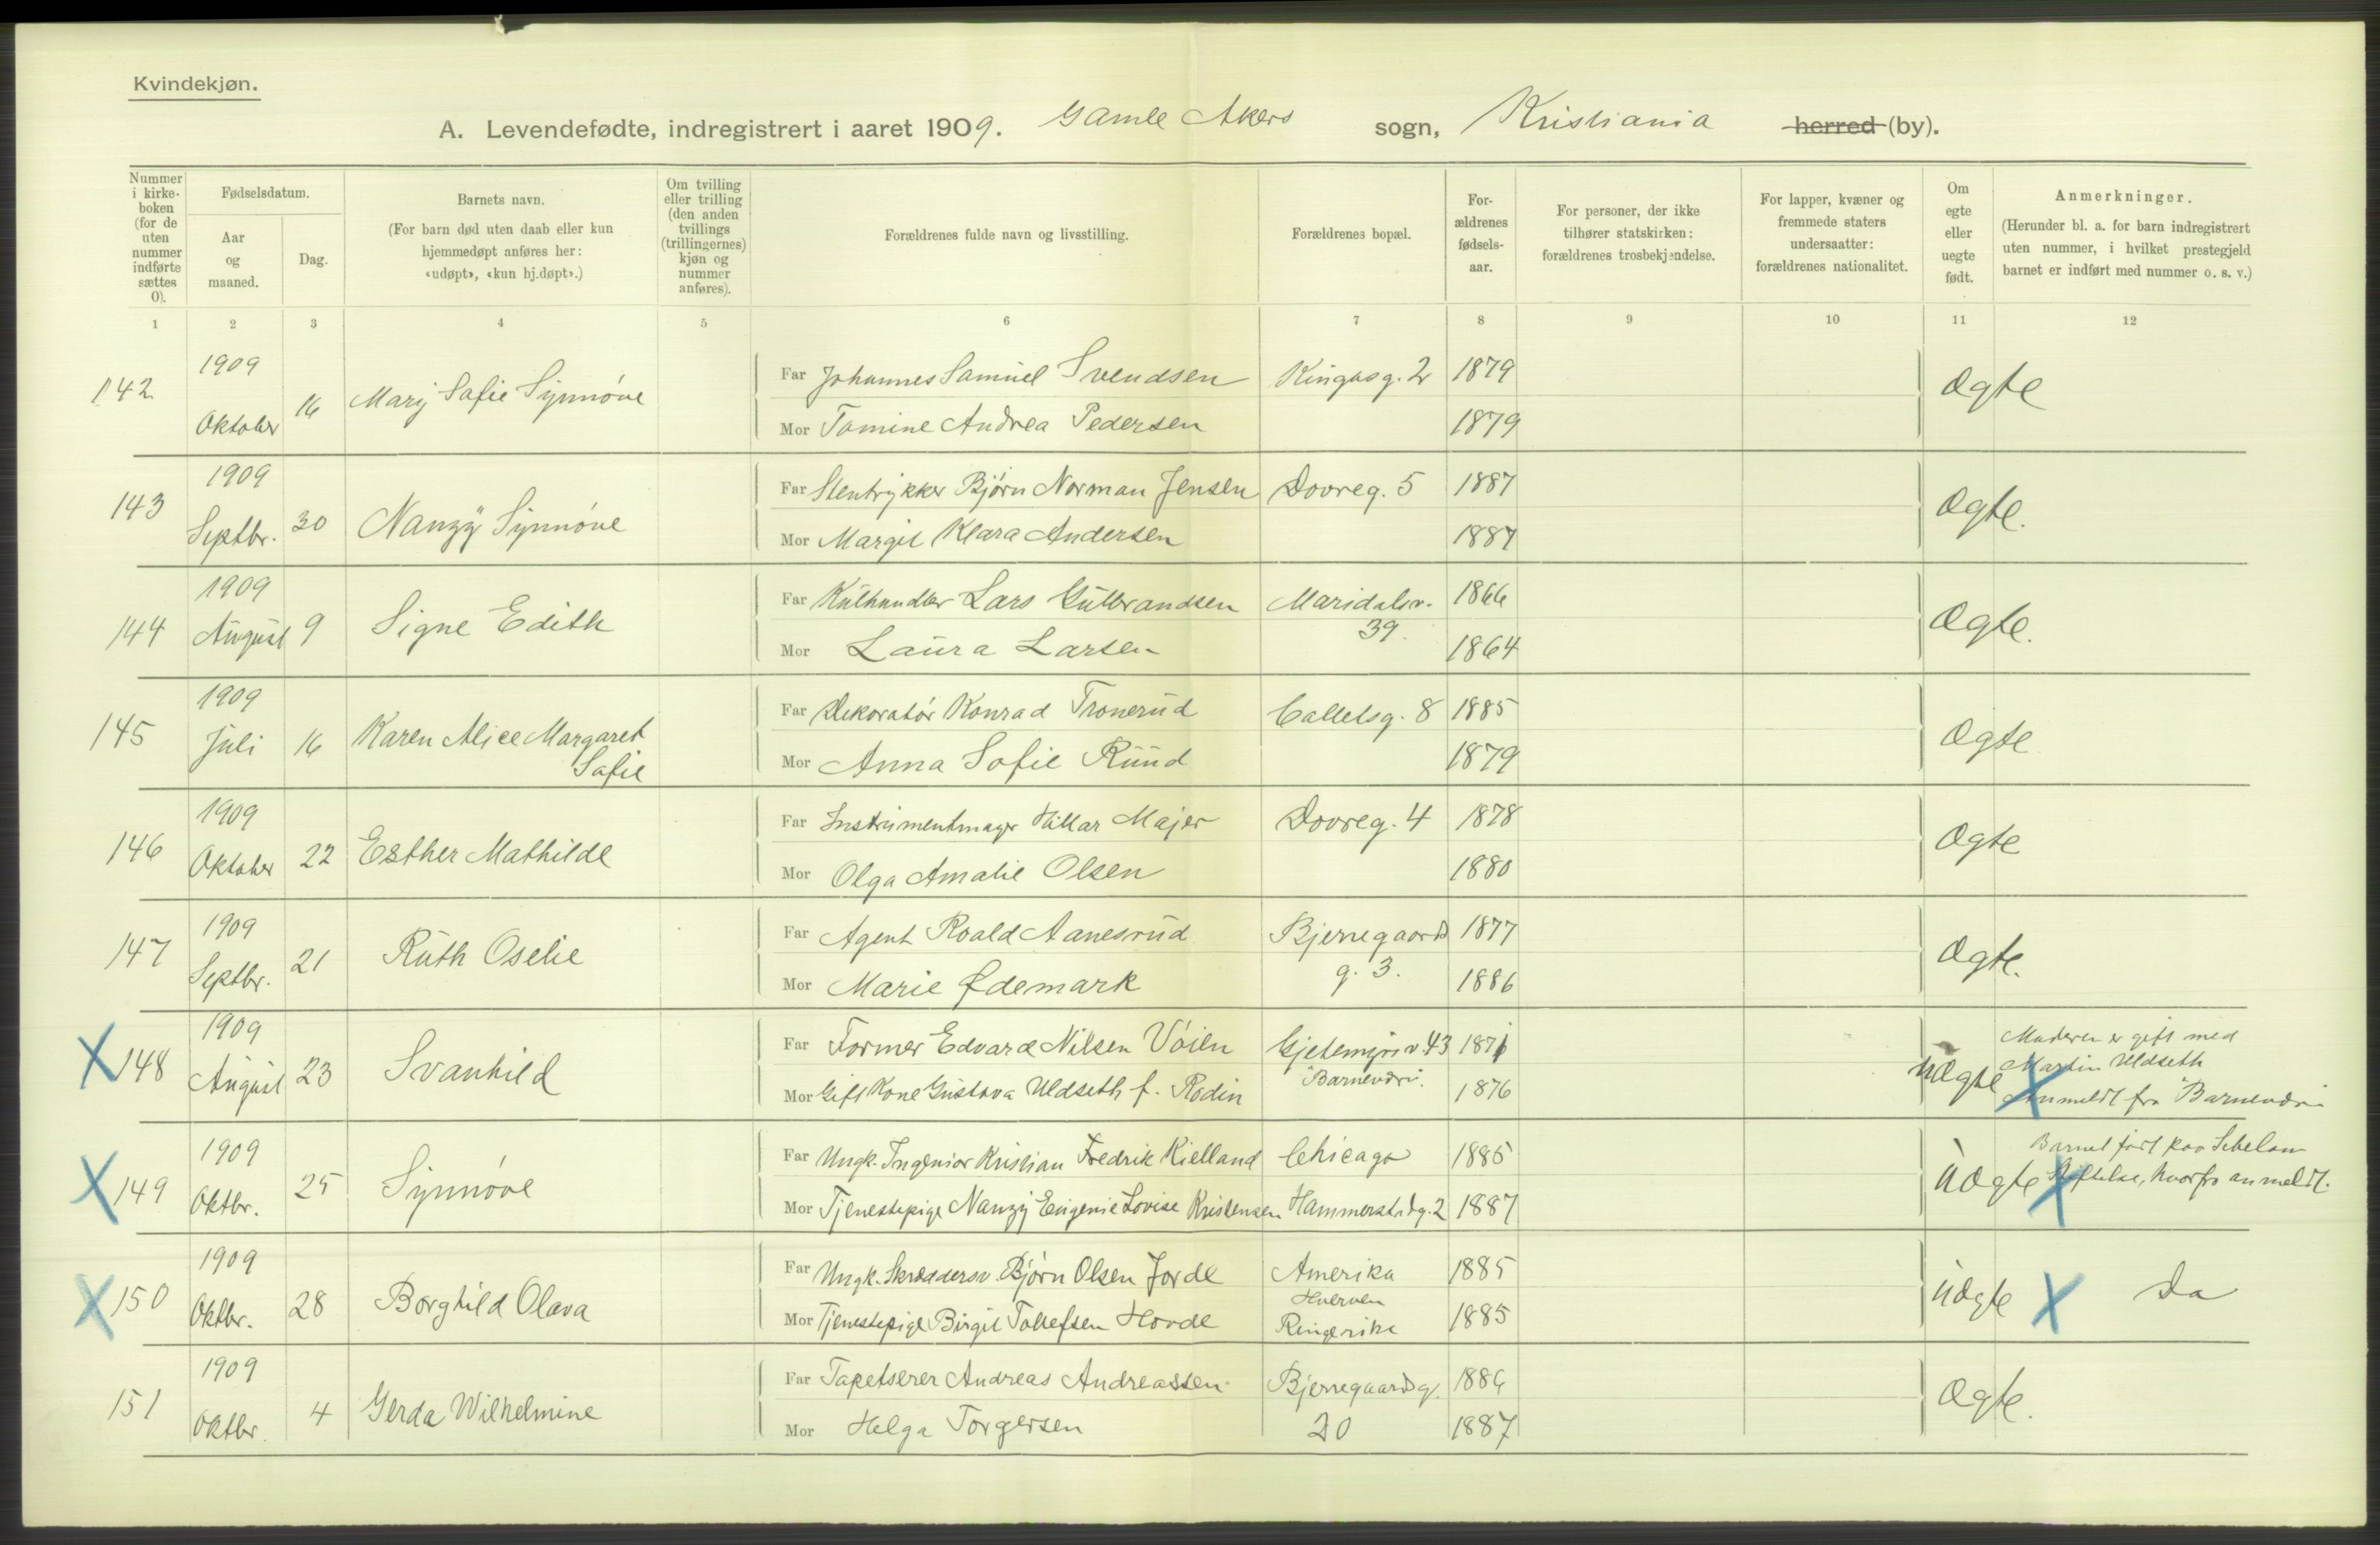 Kvindekjøn.
A. Levendefødte, indregistrert i aaret 1909. Gamle Akers sogn, Kristiania herred (by).
Nummer i kirkeboken (for de uten nummer indførte sættes 0).
Fødselsdatum.
Aar og maaned.
Dag.
Barnets navn.
(For barn død uten daab eller kun hjemmedøpt anføres her: «udøpt», «kun hj.døpt».)
Om tvilling eller trilling (den anden tvillings (trillingernes) kjøn og nummer anføres).
Forældrenes fulde navn og livsstilling.
Forældrenes bopæl.
Forældrenes fødselsaar.
For personer, der ikke tilhører statskirken: forældrenes trosbekjendelse.
For lapper, kvæner og fremmede staters undersaatter: forældrenes nationalitet.
Om egte eller uegte født.
Anmerkninger.
(Herunder bl. a. for barn indregistrert uten nummer, i hvilket prestegjeld barnet er indført med nummer o. s. v.)
1 2 3 4 5 6 7 8 9 10 11 12
142 1909 Oktober 16 Marij Sofie Synnøve
Far Johannes Samuel Svendsen Kingosg. 2 1879 Ægte
Mor Tomine Andrea Pedersen 1879
143 1909 Septbr. 30 Nanzÿ Synnøve
Far Stentrykker Bjørn Norman Jensen Dovreg. 5 1887 Ægte.
Mor Margit Klara Andersen 1887
144 1909 August 9 Signe Edith
Far Kulhandler Lars Gulbrandsen Maridalsv. 39. 1866 Ægte.
Mor Laura Larsen 1864
145 1909 Juli 16 Karen Alice Margaret Sofie
Far Dekoratør Konrad Tronerud Colletsg. 8 1885 Ægte
Mor Anna Sofie Ruud 1879
146 1909 Oktober 22 Esther Mathilde
Far Instrumentmager Majer Dovreg. 4 1878 Ægte
Mor Olga Amalie Olsen 1880
147 1909 Septbr. 21 Ruth Oselie
Far Agent Roald Aanesrud Bjerregaards g. 3. 1877 Ægte.
Mor Marie Ødemark 1886
X 148 1909 August 23 Svanhild
Far Former Edvard Nilsen Vøien Gjetemyrsv. 43 1871 Uægte X Moderen er gift med Martin Uldseth
Mor Gift Kone Gustava Uldseth f. Rodin "Barneværn". 1876 Anmeldt fra "Barnevern
X 149 1909 Oktbr. 25 Synnøve
Far Ungk. Ingeniør Kristian Fredrik Kielland Chicago 1885 Uægte X Barnet født paa
Mor Tjenestepige Nanzij Eugenie Lovise Kristensen Hammerstadg. 2 1887 Stiftelse, hvorfra anmeldt.
X 150 1909 Oktbr. 28 Borghild Olava
Far Ungk. Skræddersv. Bjørn Olsen Jorde Amerika 1885 Uægte X Do
Mor Tjenestepige Birgit Tollefsen Hovde Hverven Ringerike 1885
151 1909 Oktbr. 4 Gerda Wilhelmine
Far Tapetserer Andreas Andreassen Bjerregaardsg. 20 1886 Ægte.
Mor Helga Torgersen 1887